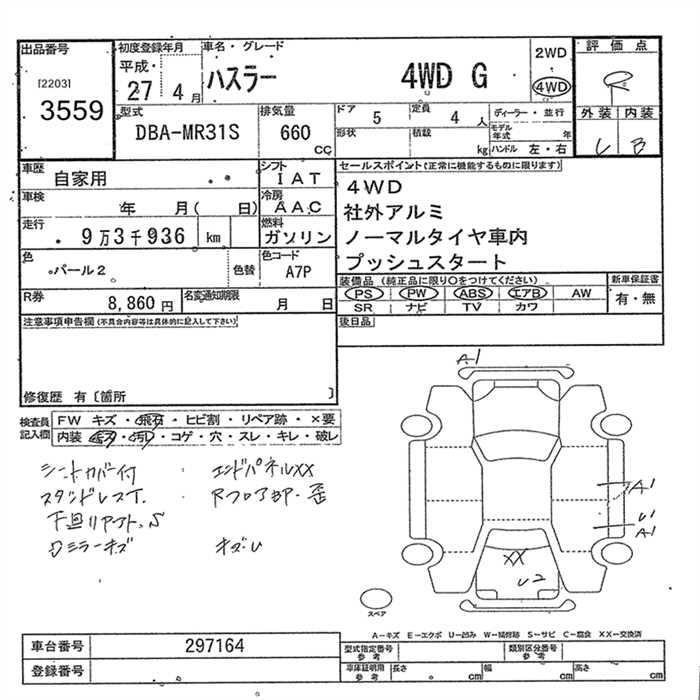 出品番号
[2203]
3559
初度登録年月
平成・
27 4月
車名・グレード
ハスラー 4WD G
2WD
4WD
評価点
R
外装 内装
C B
型式
DBA-MR31S
排気量
660
cc
ドア 5
形状
定員 4 人
積載 kg
ディーラー・並行
モデル年式 年
ハンドル 左・右
車歴
自家用
車検
年 月( 日)
走行
9万3千936 km
色
パール2
色替
R券
8,860円
名変通知期限
月 日
シフト
IAT
冷房
AAC
燃料
ガソリン
色コード
A7P
セールスポイント(正常に機能するものに限ります)
4WD
社外アルミ
ノーマルタイヤ車内
プッシュスタート
装備品(純正品に限り○をつけてください)
PS PW ABS エアB AW
SR ナビ TV カワ
新車保証書
有・無
後日品
注意事項申告欄(不具合内容等は具体的に記入して下さい)
修復歴 有〔箇所 〕
検査員
記入欄
FW キズ・飛石・ヒビ割・リペア跡・×要
内装 キズ・汚レ・コゲ・穴・スレ・キレ・破レ
シートカバー付
エンドパネルXX
スタンドレスT.
Rフロア部・歪
下廻リアクト、S
Dミラーキズ
キズ・U
A1
A1
U1
A1
XX
U2
スペア
A-キズ E-エクボ U-凹み W-補修跡 S-サビ C-腐食 XX-交換済
車台番号
297164
登録番号
型式指定番号
参考
類別区分番号
参考
車庫証明用
参考
長さ cm
幅 cm
高さ cm